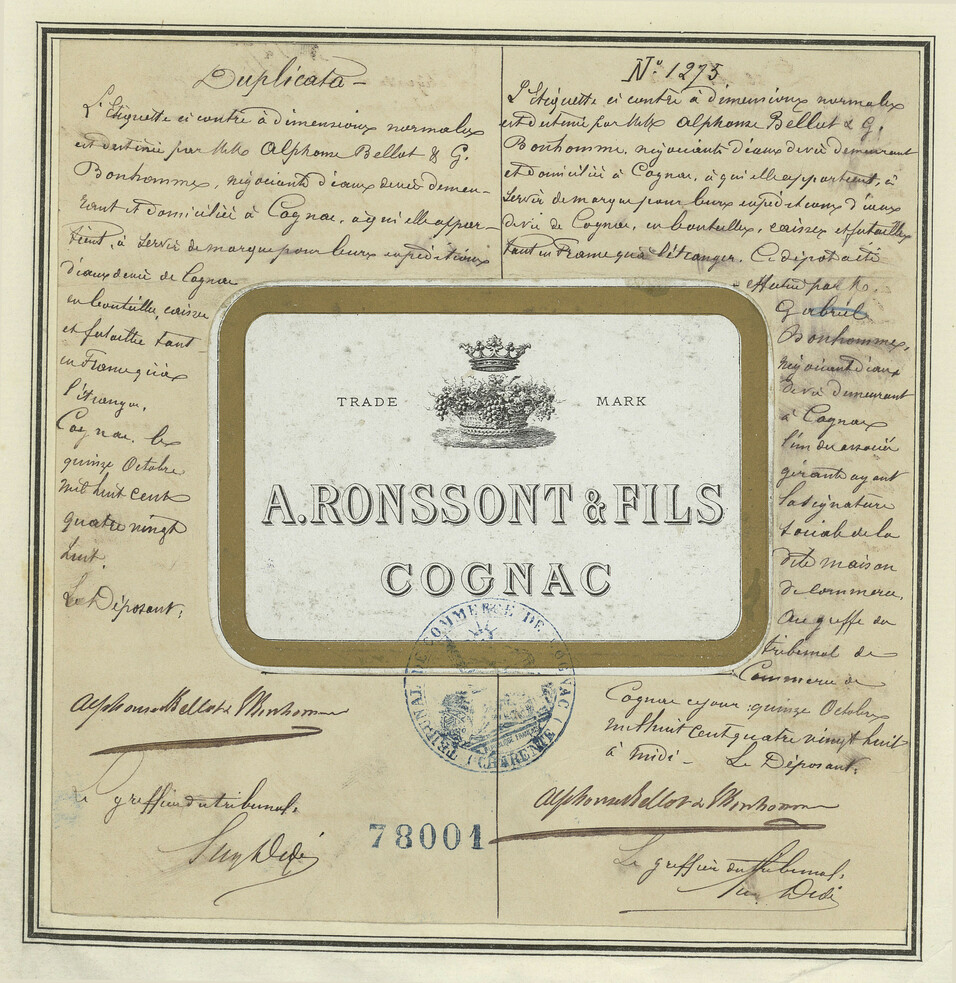 Duplicata
L'Etiquette ci contre à dimensions normales
est destinée par MM. Alphonse Bellot & G.
Bonhomme, négociants d'eaux de vie demeu-
rant et domiciliés à Cognac, à qui elle appar-
tient, à servir de marque pour leurs expéditions
d'eaux de vie de Cognac
en bouteilles, caisses
et futailles tant
en France qu'à
l'étranger.
Cognac, le
quinze Octobre
mil huit cent
quatre vingt
huit.
Le Déposant,
Alphonse Bellot & Bonhomme
Le greffier du tribunal,
N° 1275
L'Etiquette ci contre à dimensions normales
est destinée par MM. Alphonse Bellot & G.
Bonhomme, négociants d'eaux de vie demeurant
et domiciliés à Cognac, à qui elle appartient, à
servir de marque pour leurs expéditions d'eaux
de vie de Cognac, en bouteilles, caisses et futailles
tant en France qu'à l'étranger. Ce dépôt a été
effectué par M.
Gabriel
Bonhomme,
négociant d'eaux
de vie demeurant
à Cognac
l'un des associés
gérants ayant
la signature
sociale de la
dite maison
de commerce,
au greffe du
tribunal de
Commerce de
Cognac ce jour quinze Octobre
mil huit cent quatre vingt huit
à midi - Le Déposant,
Alphonse Bellot & Bonhomme
Le greffier du tribunal,
TRADE MARK
A. RONSSONT & FILS
COGNAC
TRIBUNAL DE COMMERCE DE COGNAC (CHARENTE)
78001